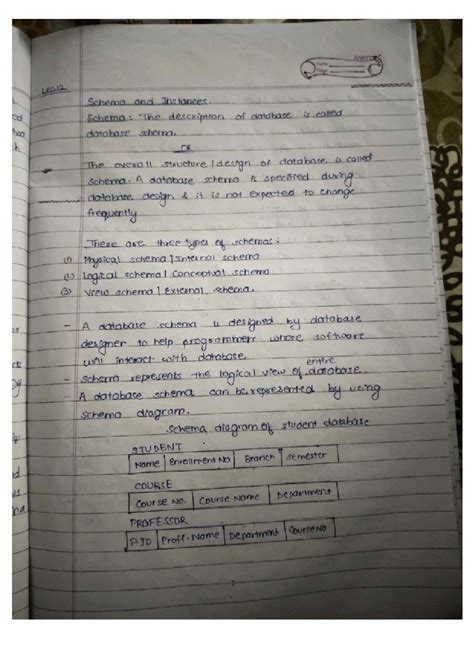 Lec.12
Schema and Instances.
Schema: The description of database is called
database schema.
OR
The overall structure / design of database is called
schema. A database schema is specified during
database design & it is not expected to change
frequently
There are three types of schemas:
(1) Physical schema | Internal schema
(2) Logical schema | Conceptual schema
(3) View schema | External schema.
- A database schema is designed by database
designer to help programmers whose software
will interact with database.
- Schema represents the logical view of entire database.
- A database schema can be represented by using
schema diagram.
Schema diagram of student database
STUDENT
Name | Enrollment No | Branch | semester
COURSE
Course No. | Course Name | Department
PROFESSOR
PID | Proff. Name | Department | Course No